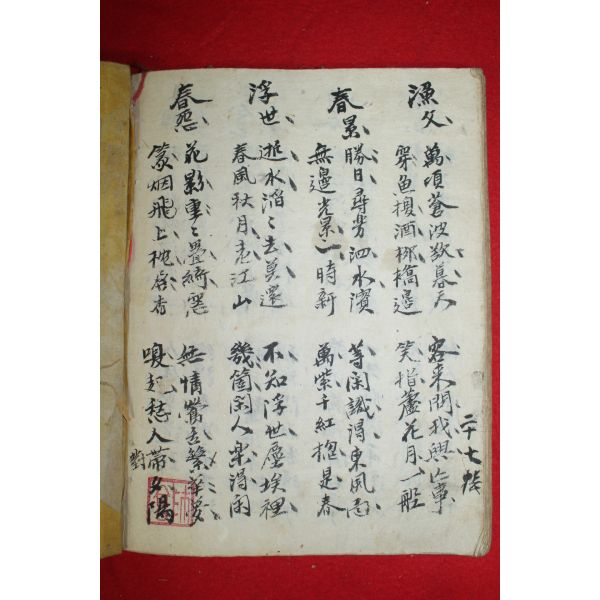 二十七帳
漁父
萬頃蒼波欲暮天 客來問我興亡事
穿魚換酒柳橋邊 笑指蘆花月一般
春景
勝日尋芳泗水濱 等閑識得東風面
無邊光景一時新 萬紫千紅摠是春
浮世
逝水滔〻去莫還 不知浮世塵埃裡
春風秋月老江山 幾箇閑人樂得閑
春怨
花影重〻疊綺窓 無情鶯舌繁華夢
篆烟飛上枕屏香 喚起愁人帶夕陽
對